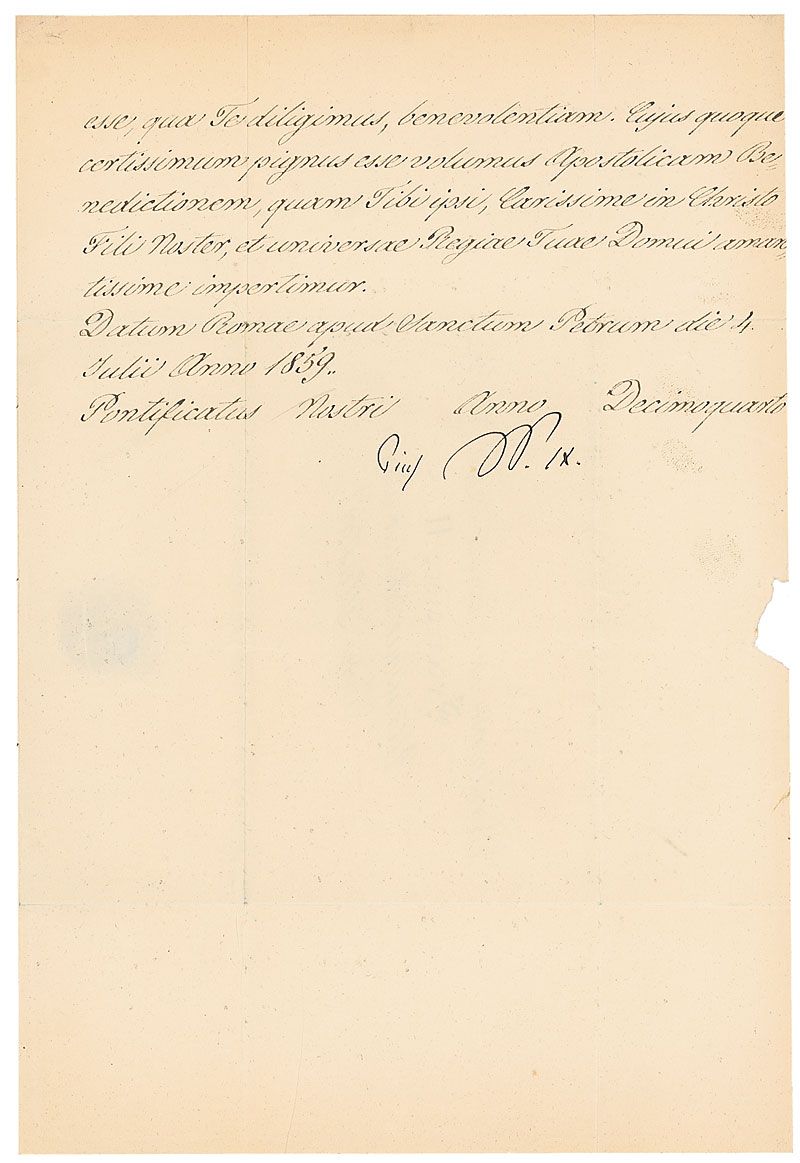 esse, qua Te diligimus, benevolentiam. Cujus quoque
certissimum pignus esse volumus Apostolicam Be¬
nedictionem, quam Tibi ipsi, Carissime in Christo
Fili Noster, et universae Regiae Tuae Domui aman¬
tissime impertimur.
Datum Romae apud Sanctum Petrum die 4.
Julii Anno 1859.
Pontificatus Nostri Anno Decimoquarto
Pius PP. IX.